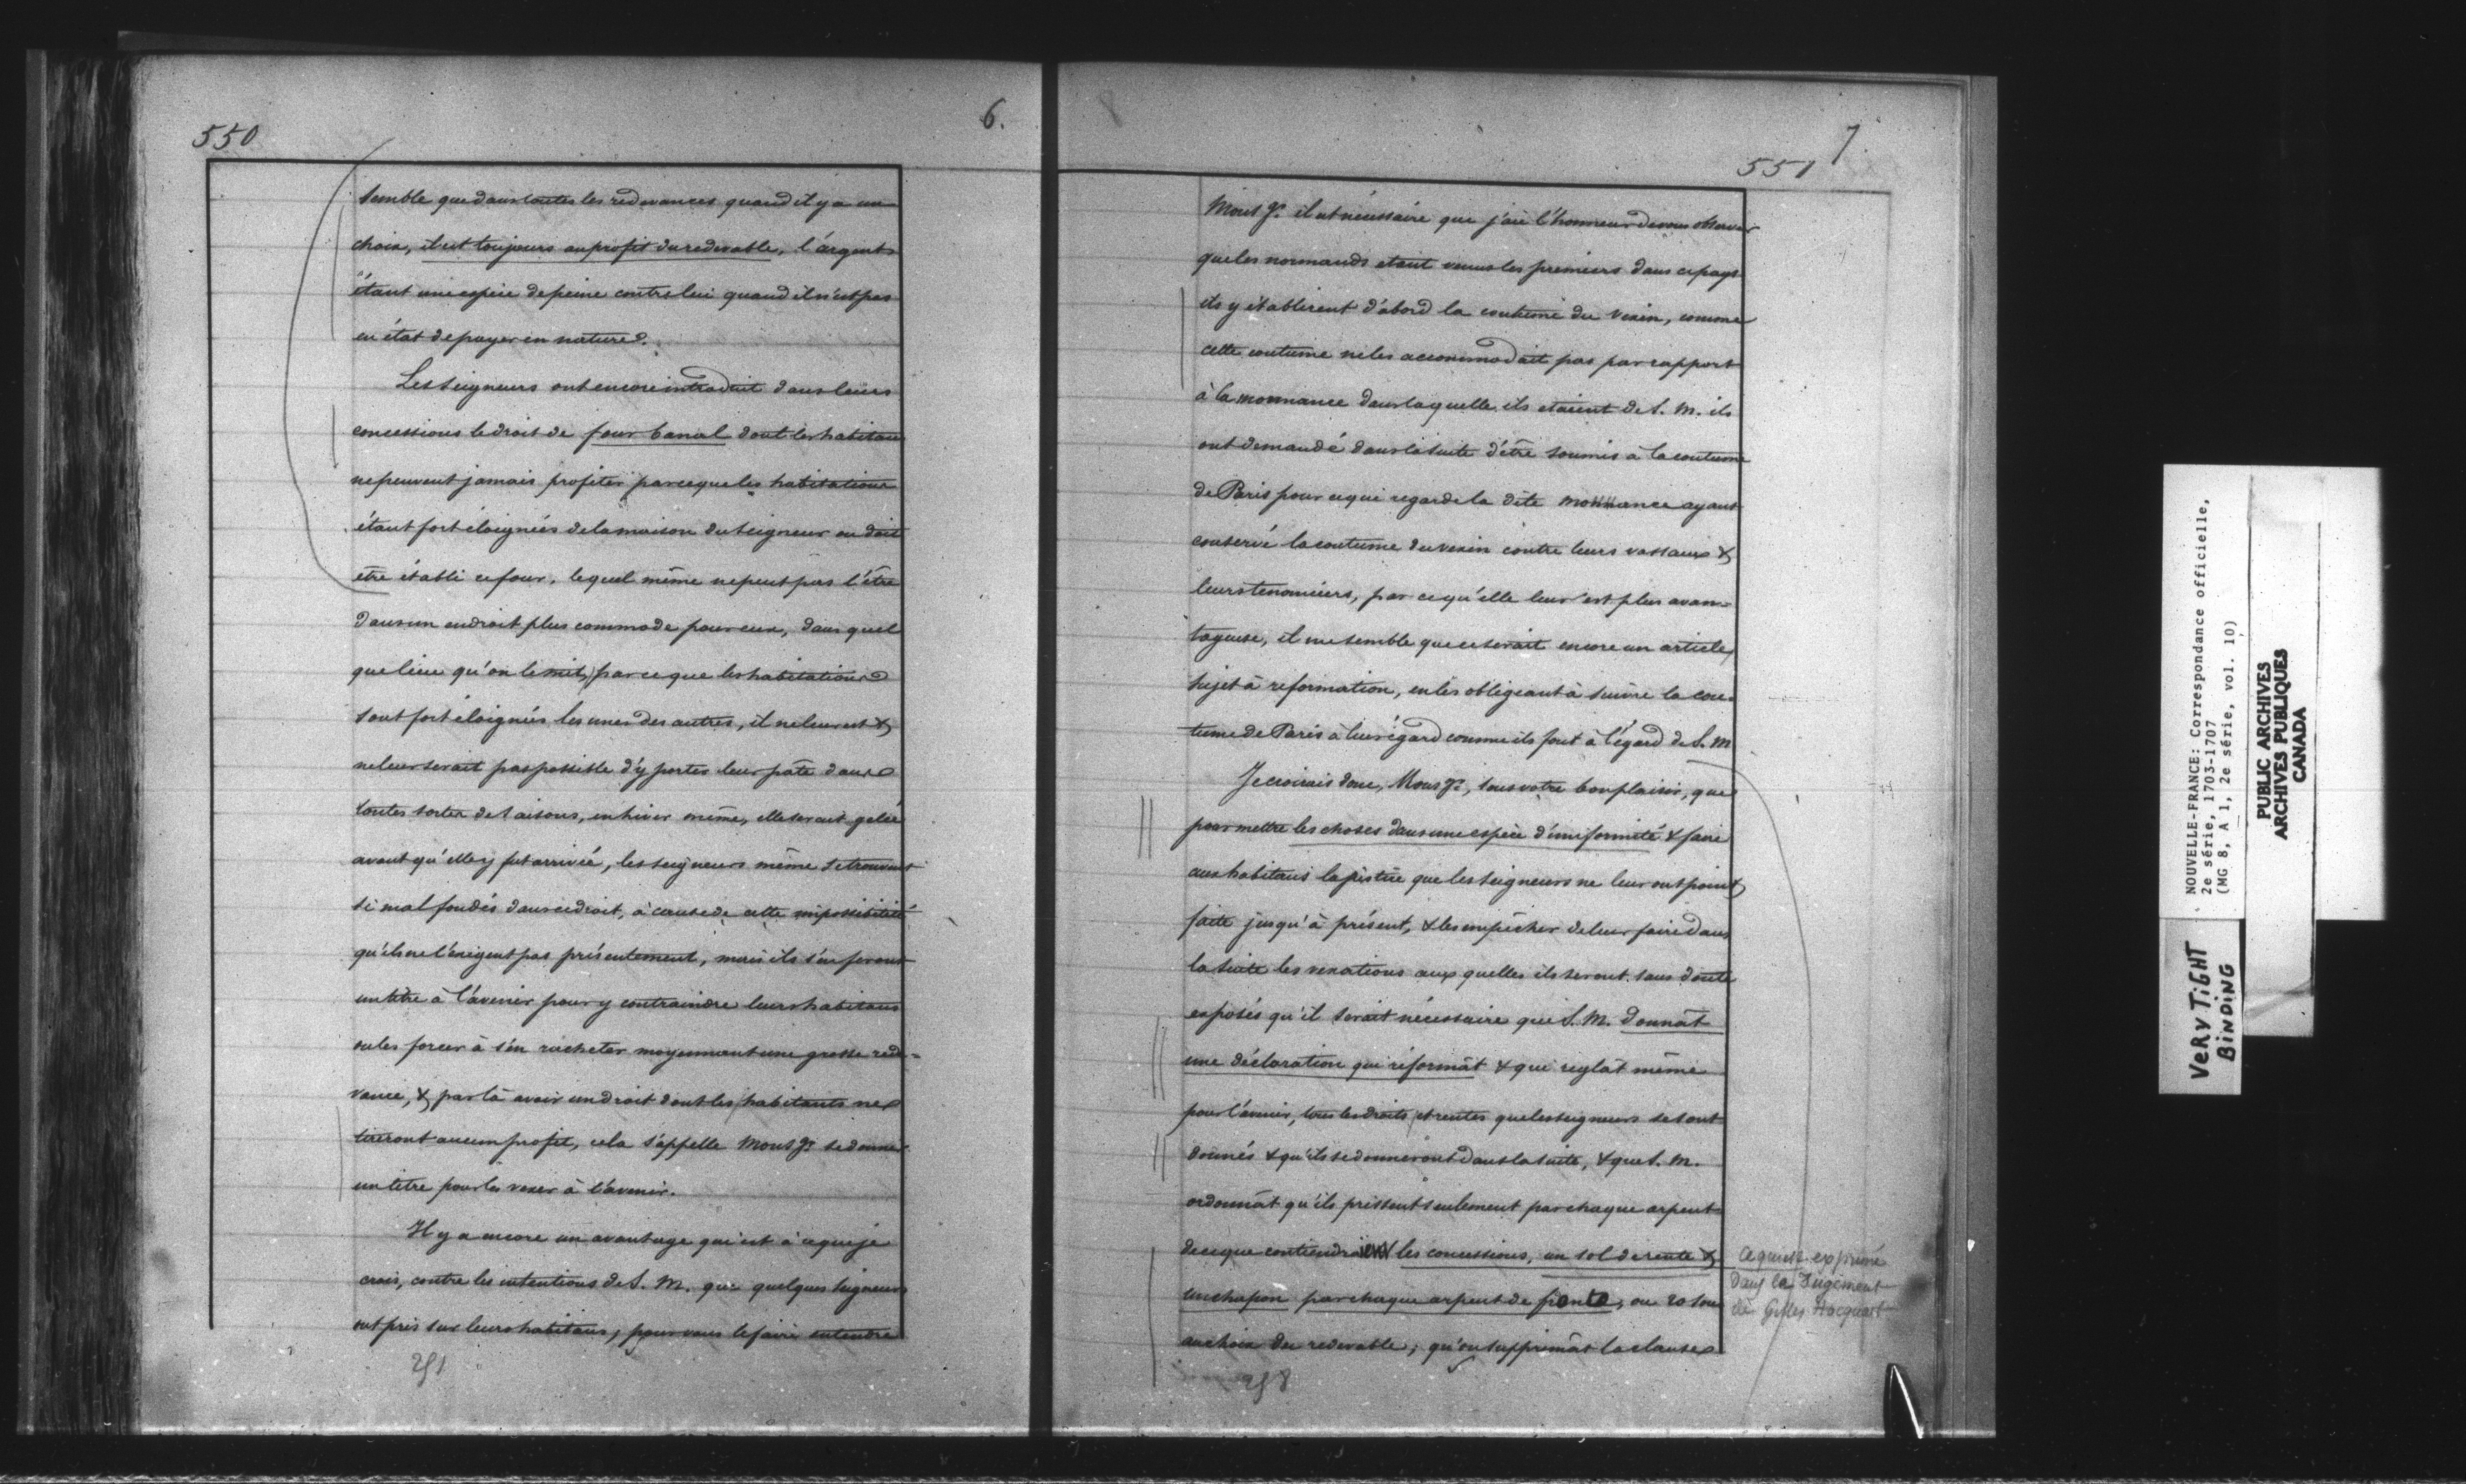 550
6.
semble que dans toutes les redevances quand il y a un
choix, il est toujours au profit du redevable, l'argent
étant une espèce de peine contre lui quand il n'est pas
en état de payer en nature.
Les Seigneurs ont encore introduit dans leurs
concessions le droit de four banal dont les habitans
ne peuvent jamais profiter parceque les habitations
étant fort éloignées de la maison du Seigneur ou doit
être établi ce four, lequel même ne peut pas l'être
dans un endroit plus commode pour eux, dans quel
que lieu qu'on le mit, parce que les habitations
sont fort éloignées les unes des autres, il ne leur est &
ne leur serait pas possible d'y porter leur pâte dans
toutes sortes de saisons, en hiver même, elle serait gelée
avant qu'elle y fut arrivée, les seigneurs même se trouvent
si mal fondés dans ce droit, à cause de cette impossibilité
qu'ils ne l'exigent pas présentement, mais ils s'en feront
un titre à l'avenir pour y contraindre leurs habitans
ou les forcer à s'en racheter moyennant une grosse rede=
vance, & par là avoir un droit dont les habitants ne
tireront aucun profit, cela s'appelle Mons gr. se donner
un titre pour les vexer à l'avenir.
Il y a encore un avantage qui est à ce que je
crois, contre les intentions de S. M. que quelques Seigneurs
ont pris sur leurs habitans, pour vous le faire entendre
251
7.
551
Mons gr. il est nécessaire que j'aie l'honneur de vous observer
que les normands etant venus les premiers dans ce pays
ils y établirent d'abord la coutume du Vexin, comme
cette coutume ne les accommodait pas par rapport
à la mouvance dans laquelle ils etaient de S. M. ils
ont demandé dans la suite d'être soumis à la coutume
de Paris pour ce qui regarde la dite mouvance ayant
conservé la coutume du Vexin contre leurs vassaux &
leurs tenanciers, par ce qu'elle leur est plus avan=
tageuse, il me semble que ce serait encore un article
sujet à reformation, en les obligeant à suivre la cou=
tume de Paris à leur égard comme ils font à l'égard de S. M
Je croirais donc, Mons gr., sous votre bon plaisir, que
pour mettre les choses dans une espèce d'uniformité & faire
aux habitans la justice que les Seigneurs ne leur ont point
faite jusqu'à présent, & les empêcher de leur faire dans
la suite les vexations aux quelles ils seront sans doute
exposés qu'il serait nécessaire que S. M. donnât
une déclaration qui réformât & qui reglât même
pour l'avenir, tous les droits et rentes que les seigneurs se sont
donnés & qu'ils se donneront dans la suite, & que S. M.
ordonnât qu'ils prissent seulement par chaque arpent
de ce que contiendraient les concessions, un sol de rente &
un chapon par chaque arpent de front, ou 20 sous
au choix du redevable; qu'on supprimât la clause
Ce qui est exprimé
dans le Jugement
de Gilles Hocquart
258
NOUVELLE-FRANCE: Correspondance officielle,
2e série, 1703-1707
(MG 8, A 1, 2e série, vol. 10)
PUBLIC ARCHIVES
ARCHIVES PUBLIQUES
CANADA
VERY TIGHT
BINDING